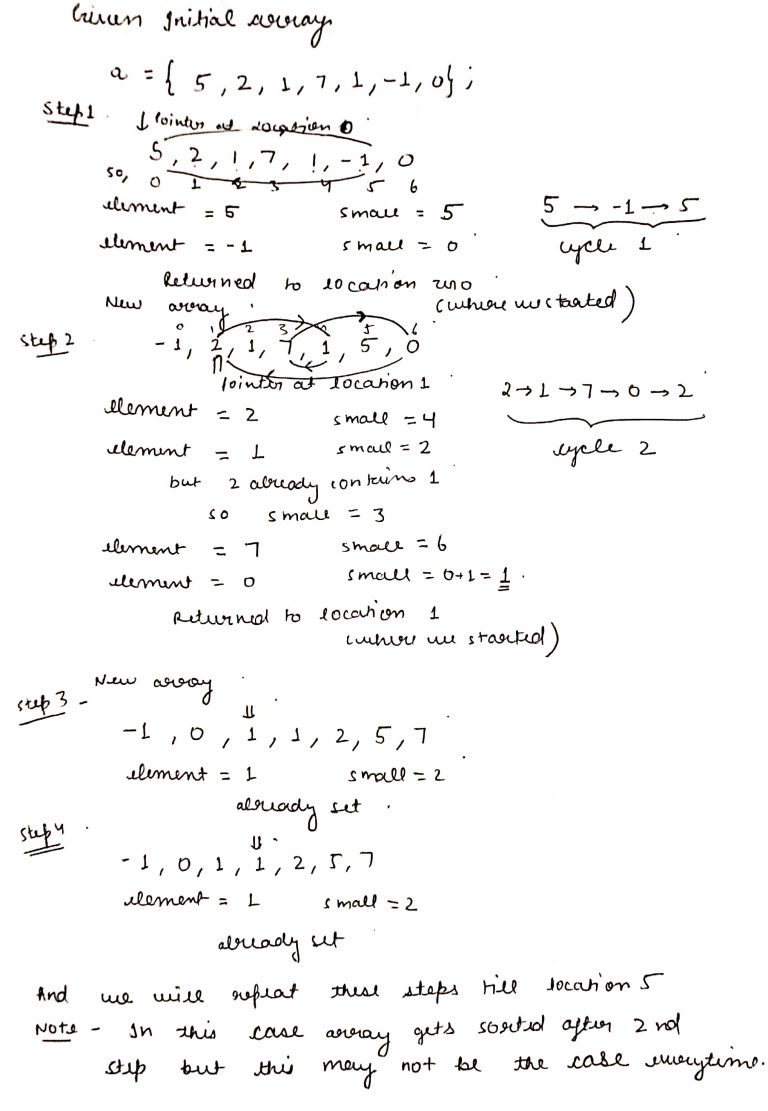 Given Initial array
a = { 5, 2, 1, 7, 1, -1, 0};
Step 1
↓ Pointer at location 0
5, 2, 1, 7, 1, -1, 0
so, 0 1 2 3 4 5 6
element = 5 small = 5 5 → -1 → 5
element = -1 small = 0 cycle 1
Returned to location zero
(where we started)
New array
0 1 2 3 5 6
Step 2 -1, 2, 1, 7, 1, 5, 0
Pointer at location 1
2 → 1 → 7 → 0 → 2
element = 2 small = 4
element = 1 small = 2 cycle 2
but 2 already contains 1
so small = 3
element = 7 small = 6
element = 0 small = 0+1 = 1.
Returned to location 1
(where we started)
Step 3 - New array
⇓
-1, 0, 1, 1, 2, 5, 7
element = 1 small = 2
already set.
Step 4
⇓
-1, 0, 1, 1, 2, 5, 7
element = 1 small = 2
already set
And we will repeat these steps till location 5
Note - In this case array gets sorted after 2nd
step but this may not be the case everytime.